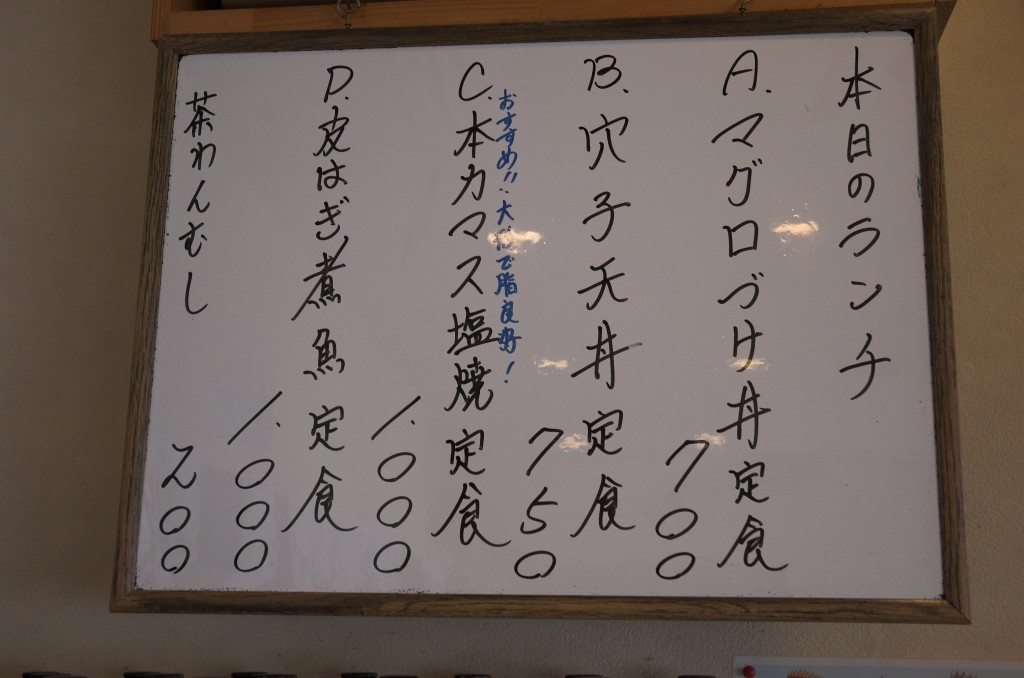 本日のランチ
A.マグロづけ丼定食
700
B.穴子天丼定食
750
おすすめ!!大型で脂良好!
C.本カマス塩焼定食
1.000
D.皮はぎ煮魚定食
1.000
茶わんむし
200